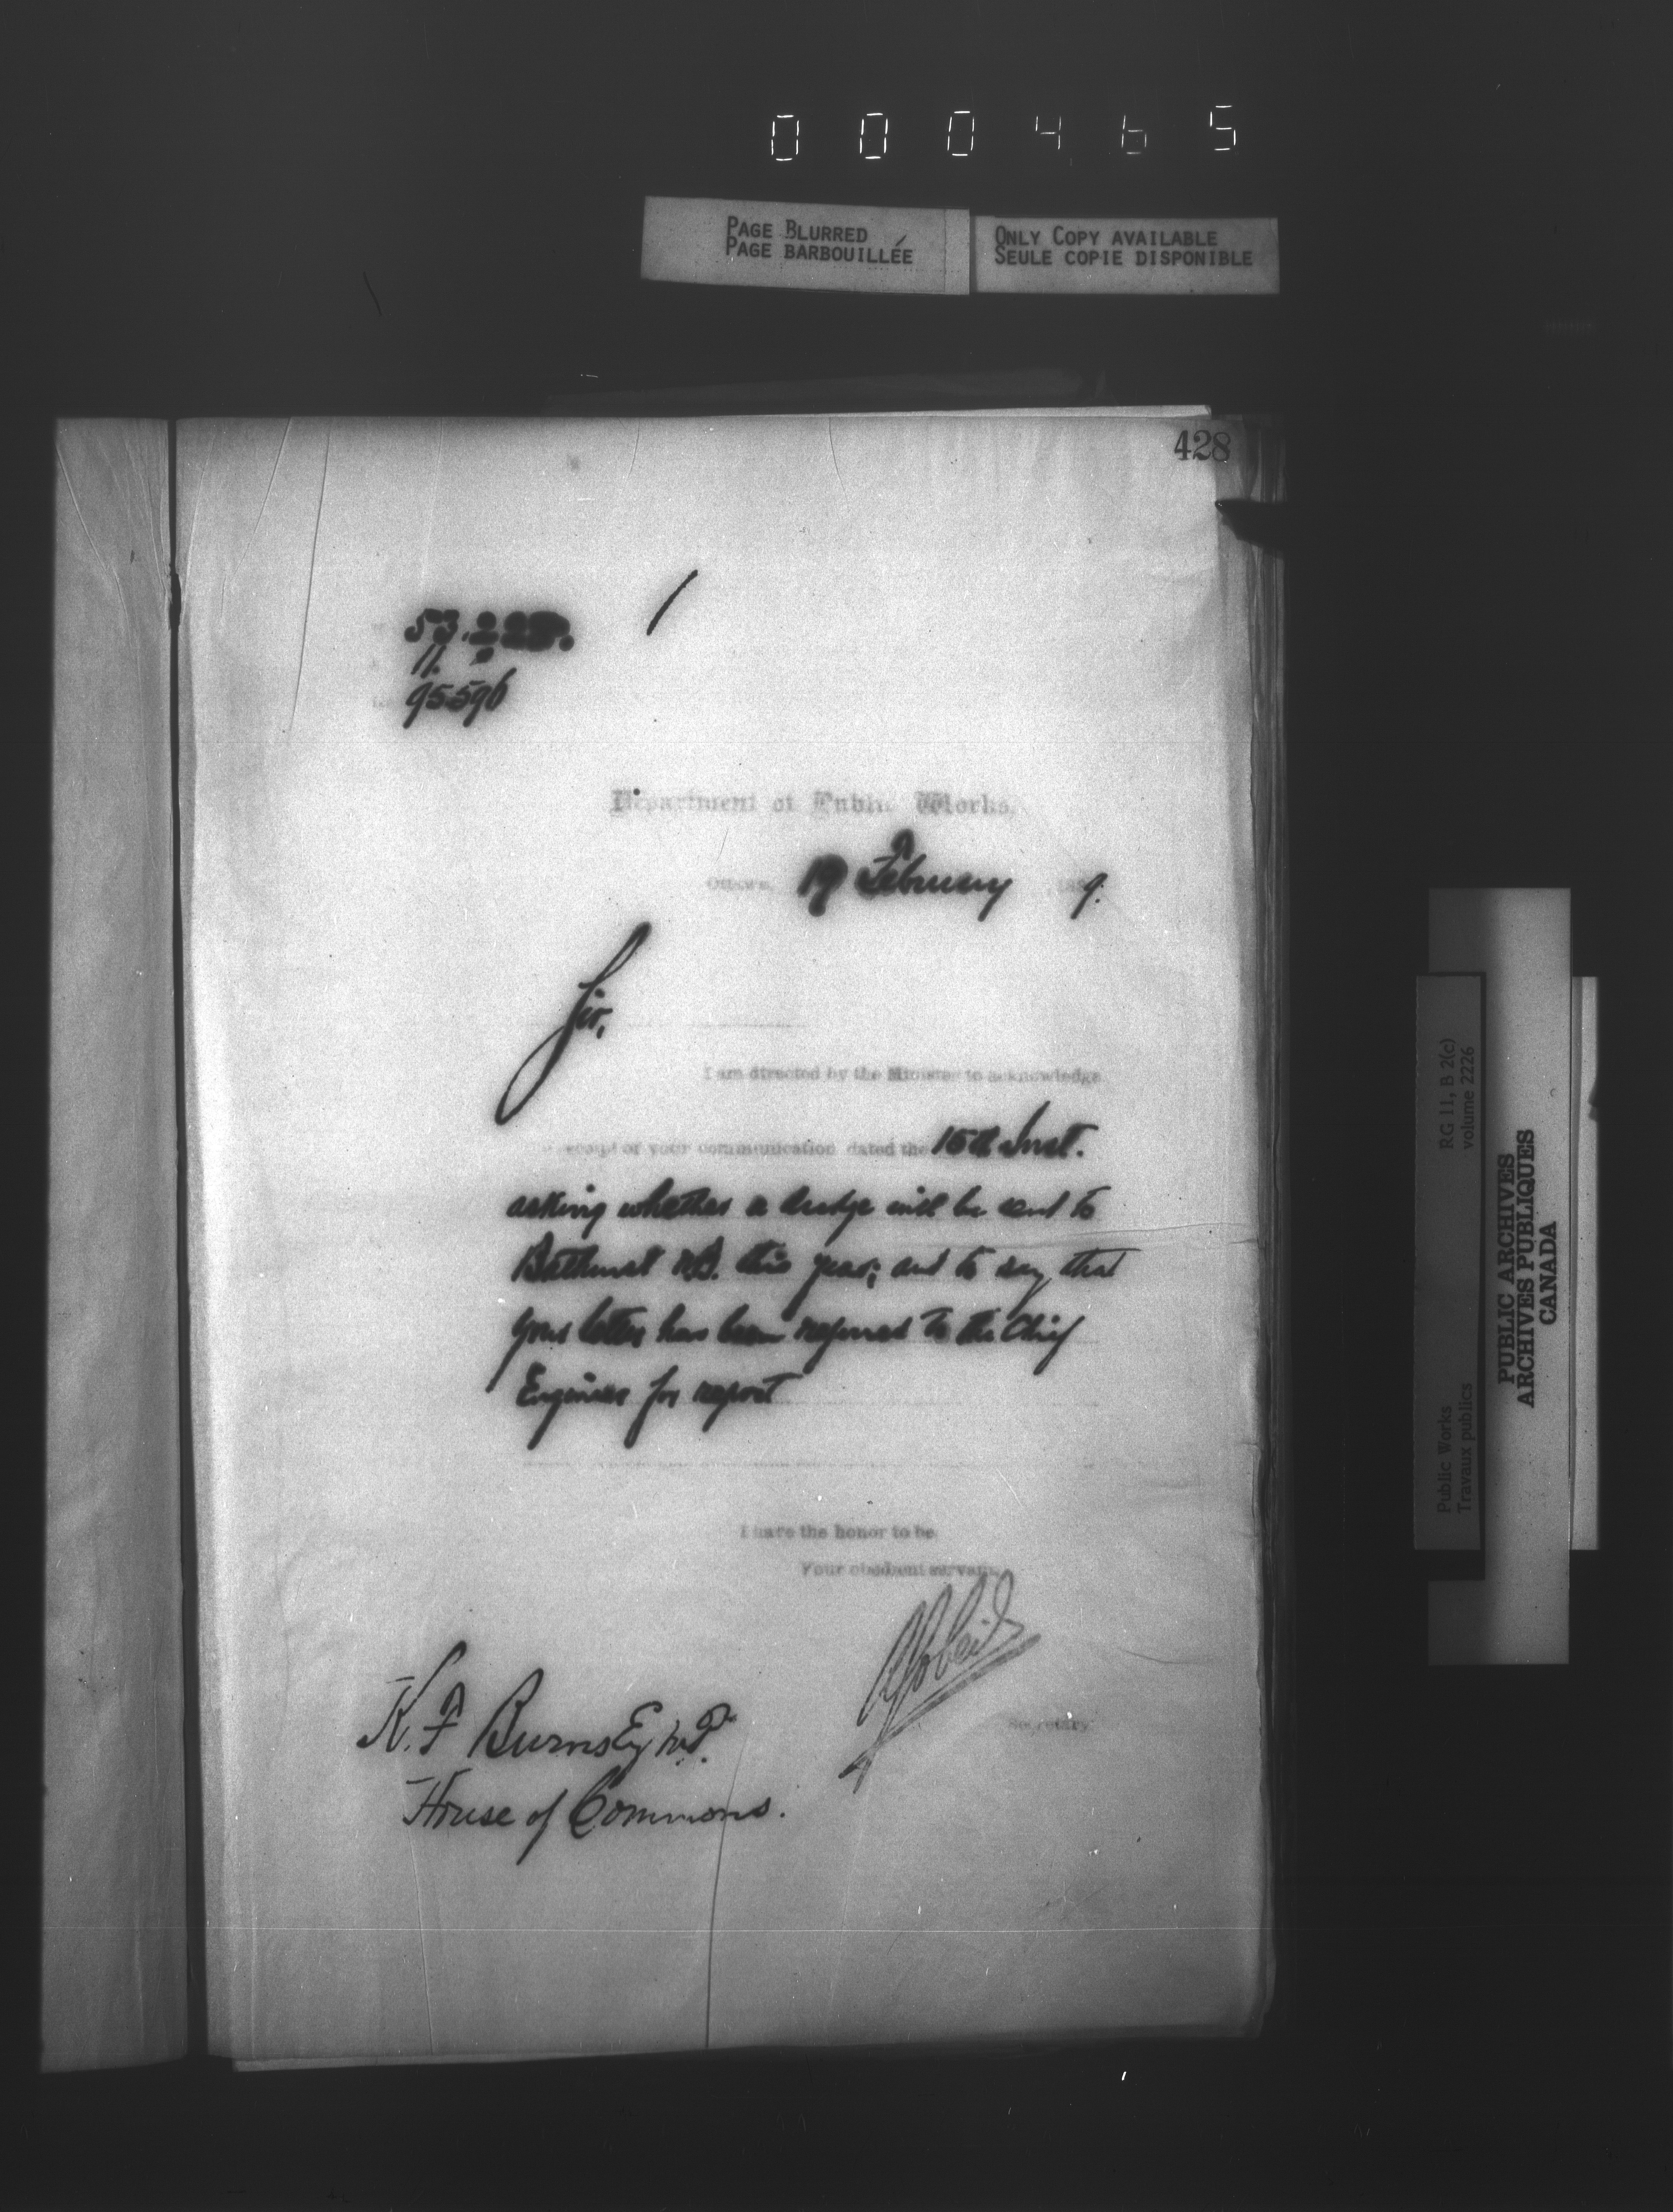 000465
PAGE BLURRED
PAGE BARBOUILLÉE
ONLY COPY AVAILABLE
SEULE COPIE DISPONIBLE
428
53.
11.
95596
Department of Public Works.
Ottawa, 19 February 188 9.
Sir,
I am directed by the Minister to acknowledge
receipt of your communication dated the 15th Inst.
asking whether a dredge will be sent to
Bathurst N.B. this year; and to say that
your letter has been referred to the Chief
Engineer for report
I have the honor to be
Your obedient servant,
A Gobeil
Secretary.
K. F Burns Esq M.P.
House of Commons.
RG 11, B 2(c)
volume 2226
Public Works
Travaux publics
PUBLIC ARCHIVES
ARCHIVES PUBLIQUES
CANADA